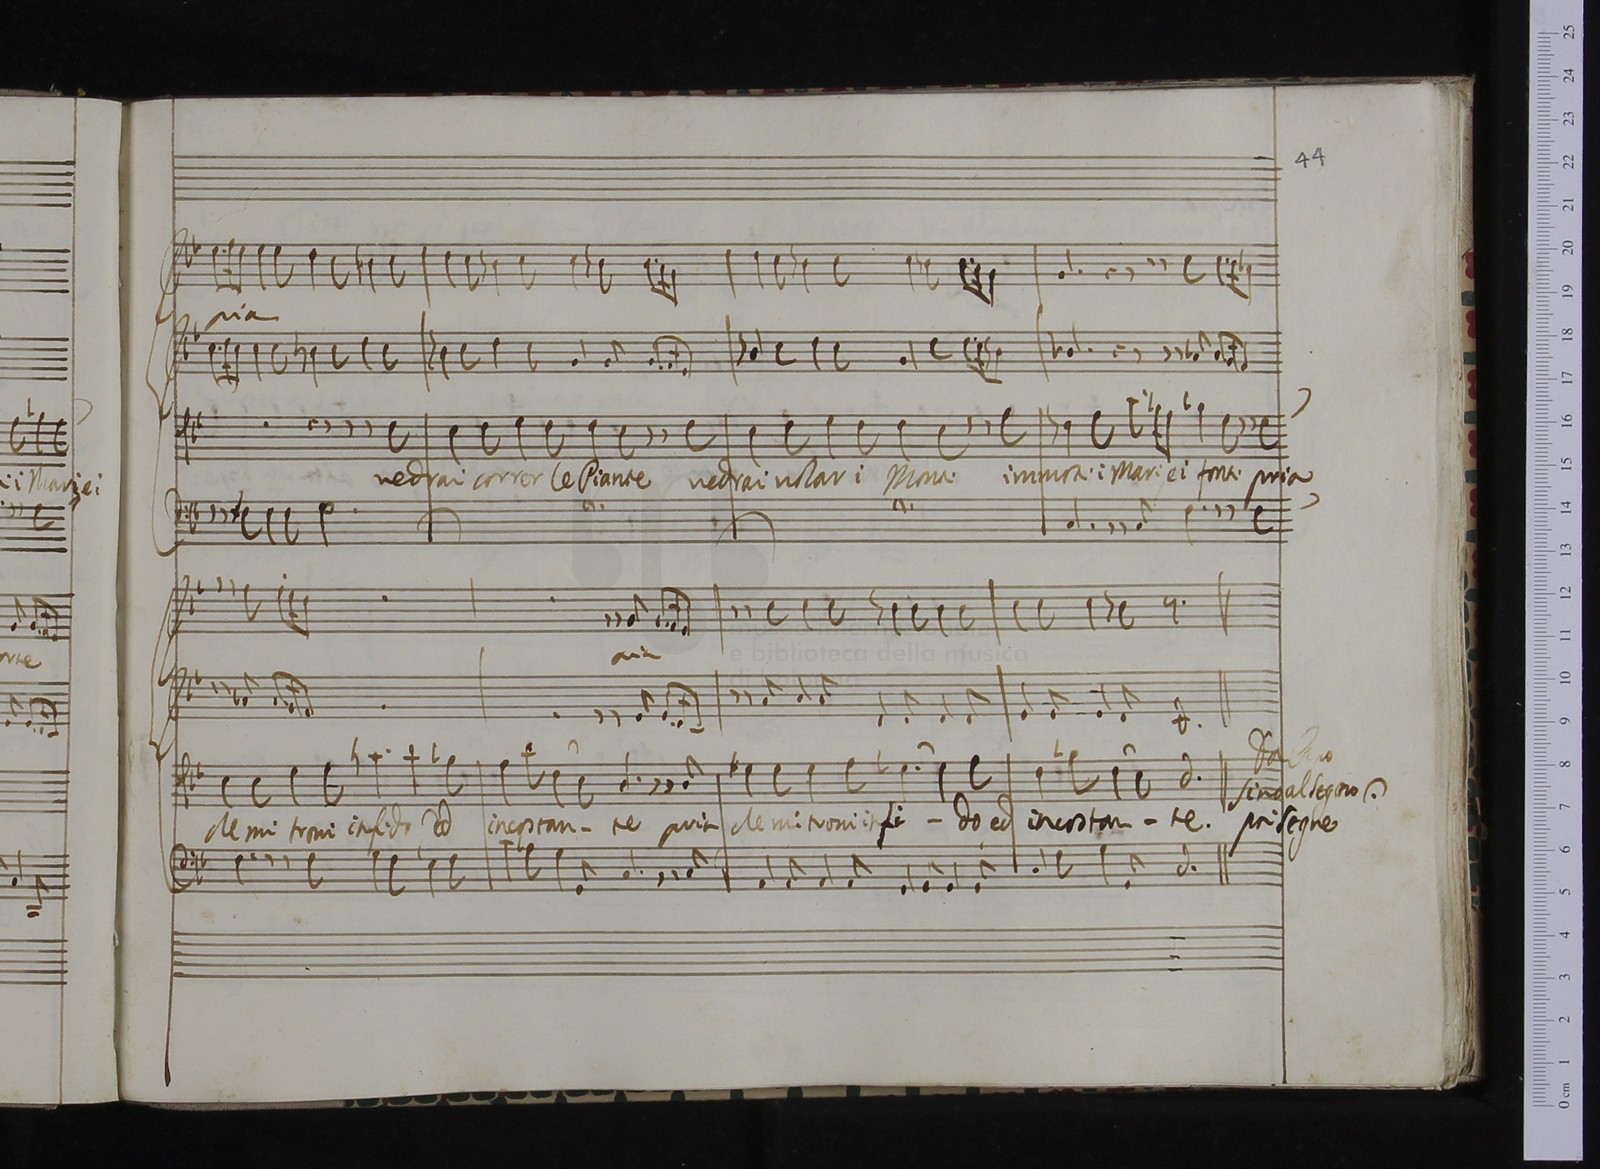 44
pia
vedrai correr le Piante vedrai volar i Monti immoti i Mari e i fonti pria
pia
che mi trovi infido ed incostan - te pria che mi trovi infi - do ed incostan - te.
Da Capo
sino al segno
poi segue
museo internazionale
e biblioteca della musica
di bologna
25
24
23
22
21
20
19
18
17
16
15
14
13
12
11
10
9
8
7
6
5
4
3
2
1
0 cm